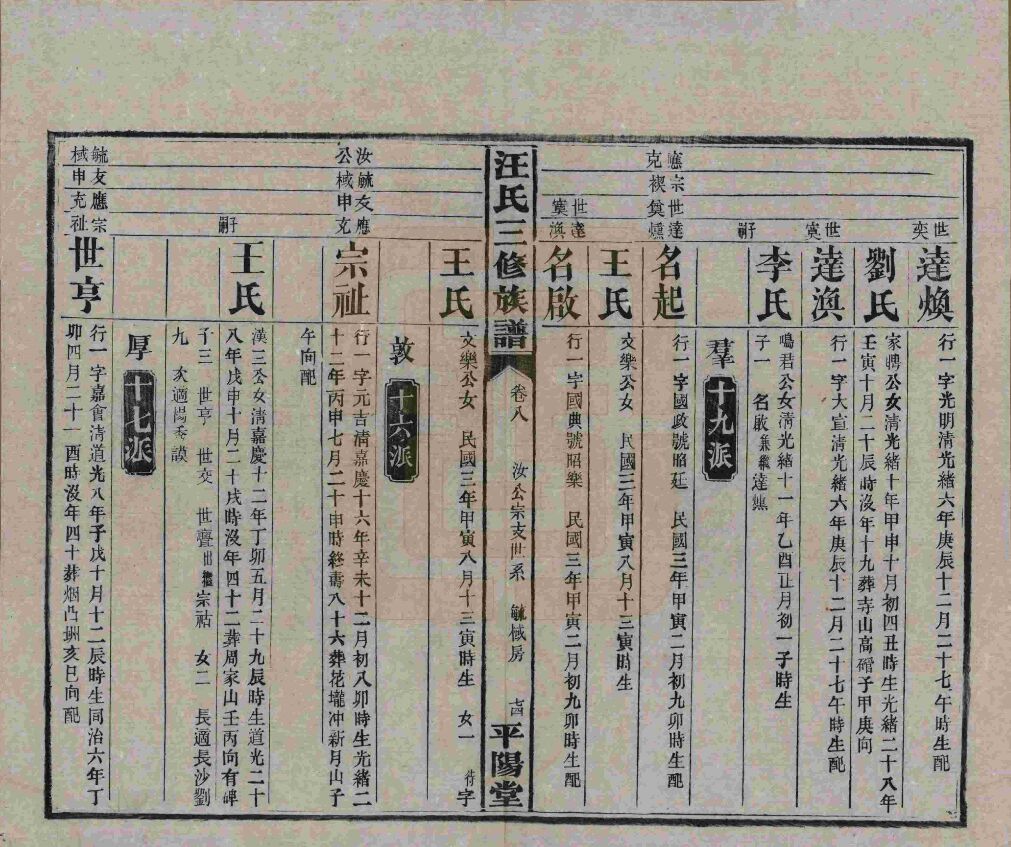 世奕
達煥
行一字光明清光緒六年庚辰十二月二十七午時生配
劉氏
家騁公女清光緒十年甲申十月初四丑時生光緒二十八年
壬寅十月二十辰時沒年十九葬寺山高磡子甲庚向
世寞
達渙
行一字大宣清光緒六年庚辰十二月二十七午時生配
嗣子
李氏
鳴君公女清光緒十一年乙酉正月初一子時生
子一 名啟兼繼達煥
羣
十九派
應宗世達
克禊奠爔
名起
行一字國政號昭廷 民國三年甲寅二月初九卯時生配
王氏
文樂公女 民國三年甲寅八月十三寅時生
世達
寞渙
名啟
行一字國典號昭樂 民國三年甲寅二月初九卯時生配
汪氏三修族譜
卷八
汝公宗支世系 毓棫房
十四
平陽堂
王氏
文樂公女 民國三年甲寅八月十三寅時生 女一 待字
敦
十六派
汝毓友應
公棫申充
宗祉
行一字元吉清嘉慶十六年辛未十二月初八卯時生光緒二
十二年丙申七月二十申時終壽八十六葬花壠冲新月山子
午向配
嗣子
王氏
漢三公女清嘉慶十二年丁卯五月二十九辰時生道光二十
八年戊申十月二十戌時沒年四十二葬周家山壬丙向有碑
子三 世亨 世交 世亹出繼宗祜 女二 長適長沙劉
九 次適陽秀謨
厚
十七派
毓友應宗
棫申充祉
世亨
行一字嘉會清道光八年子戊十月十二辰時生同治六年丁
卯四月二十一酉時沒年四十葬烟凸坤亥巳向配